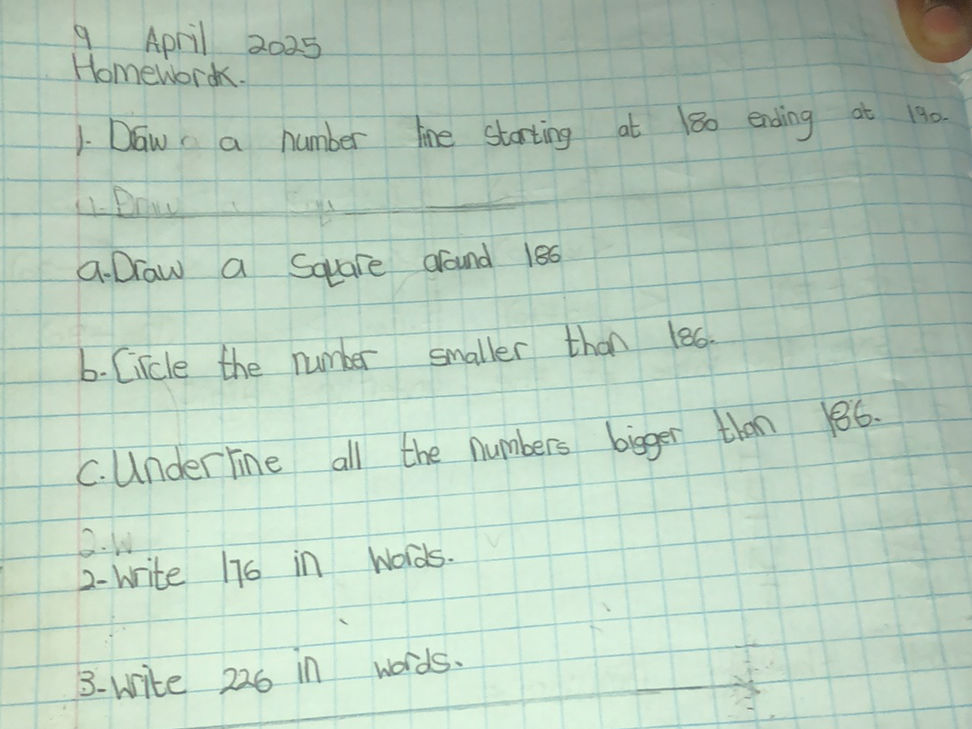 9 April 2025
Homewordk.
1. Draw a number line starting at 180 ending at 190.
1. Draw
a. Draw a Square around 186
b. Circle the number smaller than 186.
c. Underline all the numbers bigger than 186.
2. W
2- Write 176 in words.
3- Write 226 in words.